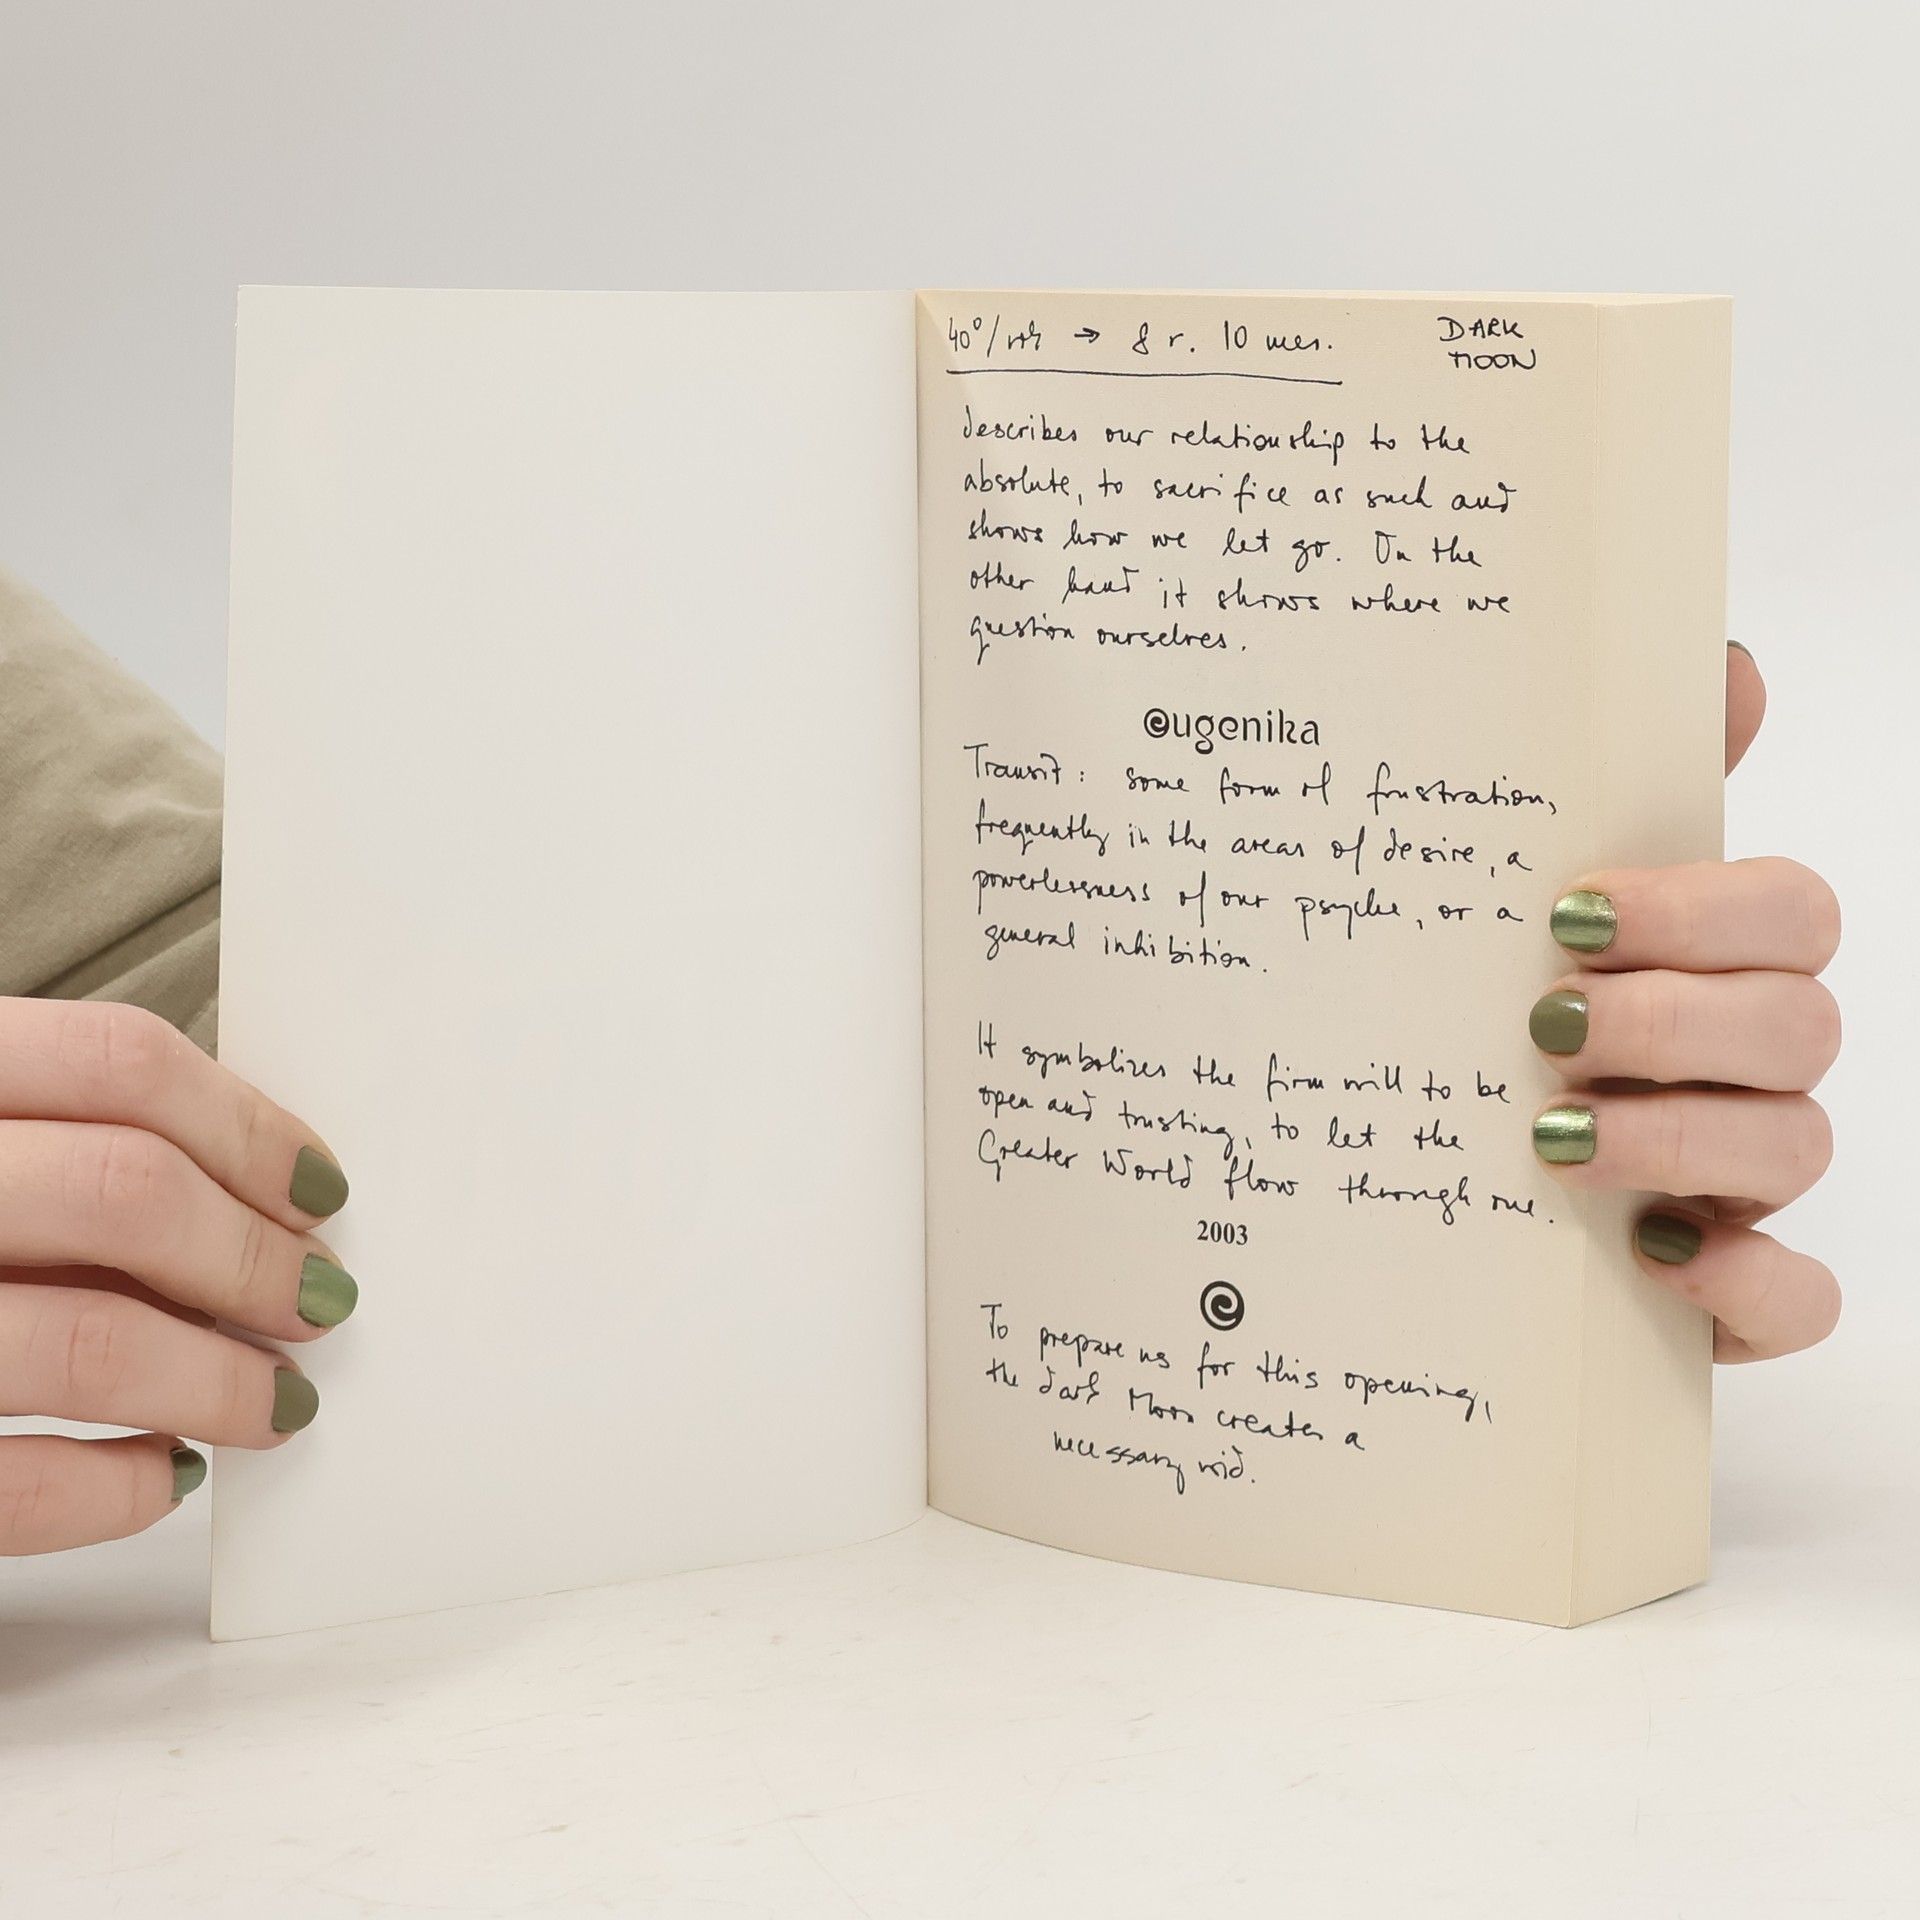 40°/rok → 8 r. 10 mes.
DARK
MOON
describes our relationship to the
absolute, to sacrifice as such and
shows how we let go. On the
other hand it shows where we
question ourselves.
eugenika
Transit: some form of frustration,
frequently in the areas of desire, a
powerlessness of our psyche, or a
general inhibition.
It symbolizes the firm will to be
open and trusting, to let the
Greater World flow through one.
2003
To prepare us for this opening,
the dark Moon creates a
necessary void.